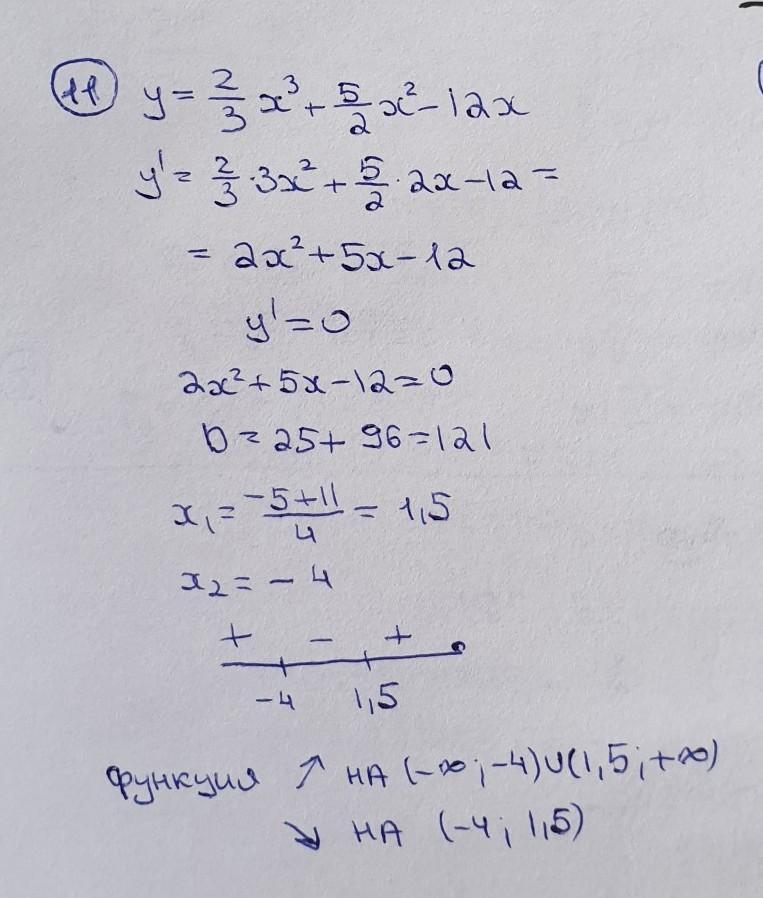 11 y = 2/3 x³ + 5/2 x² - 12x
y' = 2/3 · 3x² + 5/2 · 2x - 12 =
= 2x² + 5x - 12
y' = 0
2x² + 5x - 12 = 0
D = 25 + 96 = 121
x₁ = (-5+11)/4 = 1,5
x₂ = - 4
+ - +
-4 1,5
функция ↗ НА (-∞; -4)∪(1,5; +∞)
↘ НА (-4; 1,5)